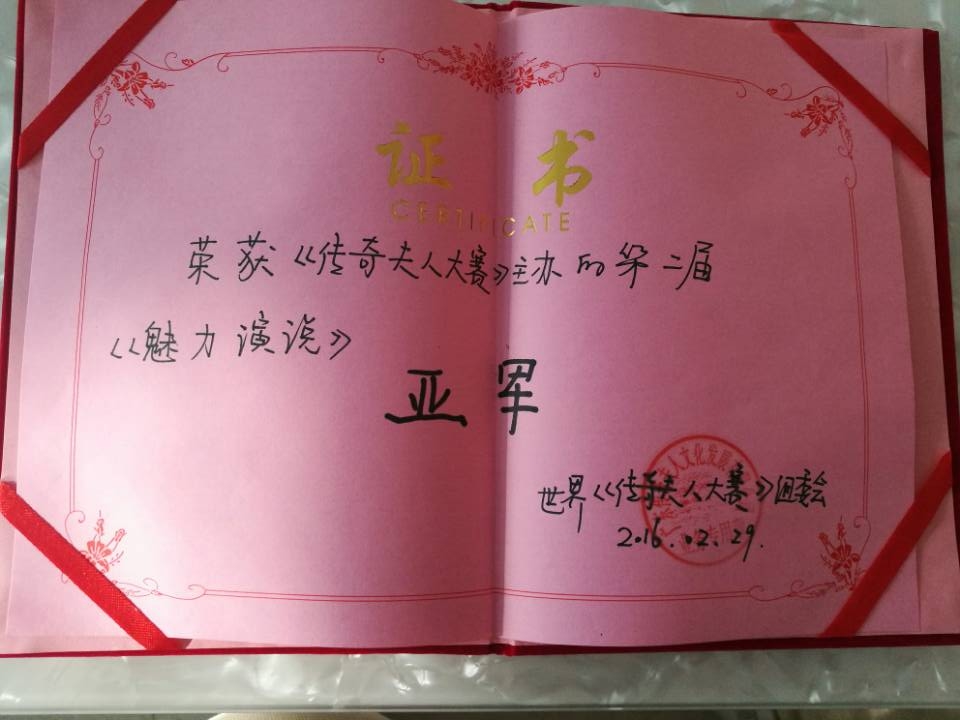 证书
CERTIFICATE
荣获《传奇夫人大赛》主办的第二届
《魅力演说》
亚军
人文化发展
世界《传奇夫人大赛》组委会
2016.02.29.